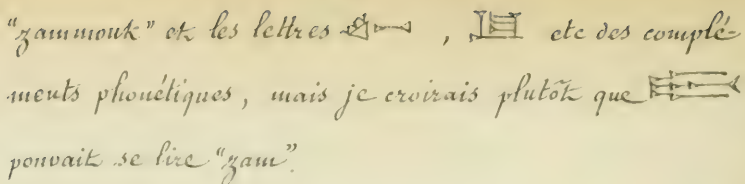 "zammouk" et les lettres , etc des complé-
ments phonétiques, mais je croirais plutôt que
pouvait se lire "zam".